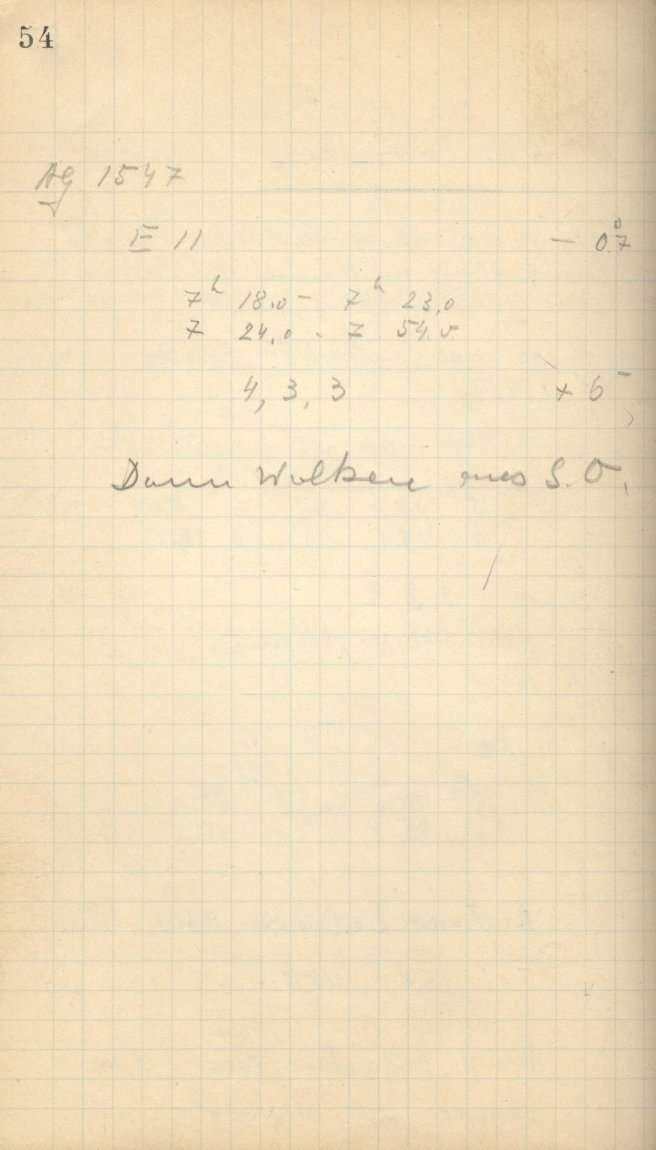 54
AG 1547
E 11 — 0°.7
7ʰ 18.0 – 7ʰ 23.0
7 24.0 - 7 54.0
4, 3, 3 + 6
Dann Wolken aus S.O.